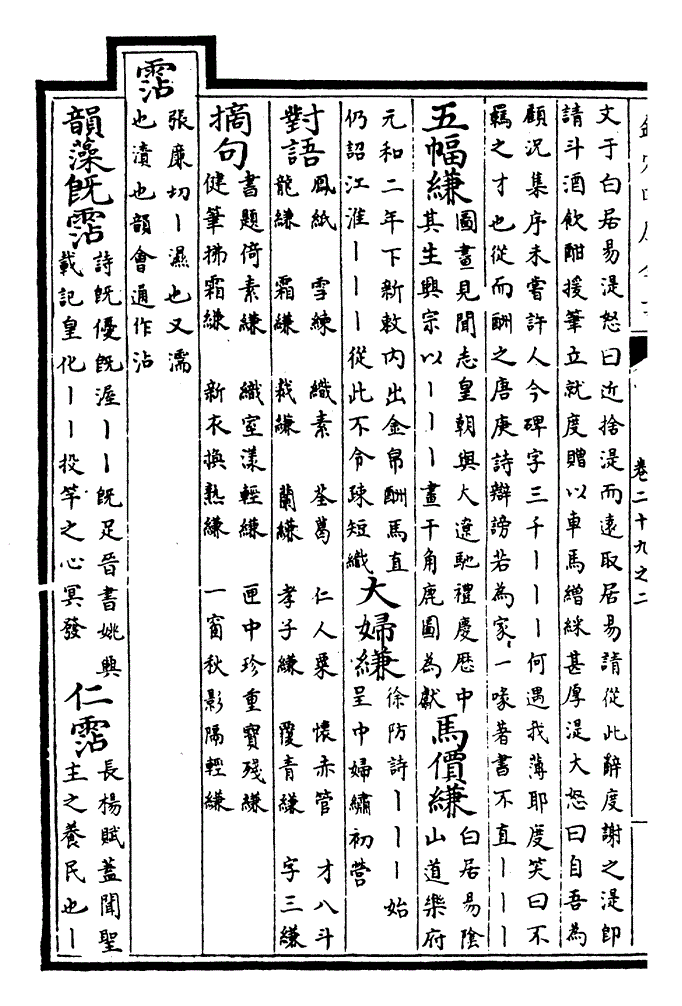 卷二十九之二
文于白居易湜怒曰近捨湜而遠取居易請從此辭度謝之湜即
請斗酒飲酣援筆立就度贈以車馬繒綵甚厚湜大怒曰自吾為
顧況集序未嘗許人今碑字三千丨丨丨何遇我薄耶度笑曰不
羈之才也從而酬之唐庚詩辯謗若為家一喙著書不直丨丨丨
五幅縑
圖畫見聞志皇朝與大遼馳禮慶歷中
其生興宗以丨丨丨畫千角鹿圖為獻
馬價縑
白居易陰
山道樂府
元和二年下新敕內出金帛酬馬直
仍詔江淮丨丨丨從此不令疎短織
大婦縑
徐防詩丨丨丨始
呈中婦繡初營
對語
鳳紙 雪練 織素 荃葛 仁人粟 懷赤管 才八斗
龍縑 霜縑 裁縑 蘭縑 孝子縑 覆青縑 字三縑
摘句
書題倚素縑 織室漾輕縑 匣中珍重寶殘縑
健筆拂霜縑 新衣換熟縑 一窗秋影隔輕縑
霑
張廉切丨濕也又濡
也漬也韻會通作沾
韻藻既霑
詩既優既渥丨丨既足晉書姚興
載記皇化丨丨投竿之心冥發
仁霑
長楊賦蓋聞聖
主之養民也丨